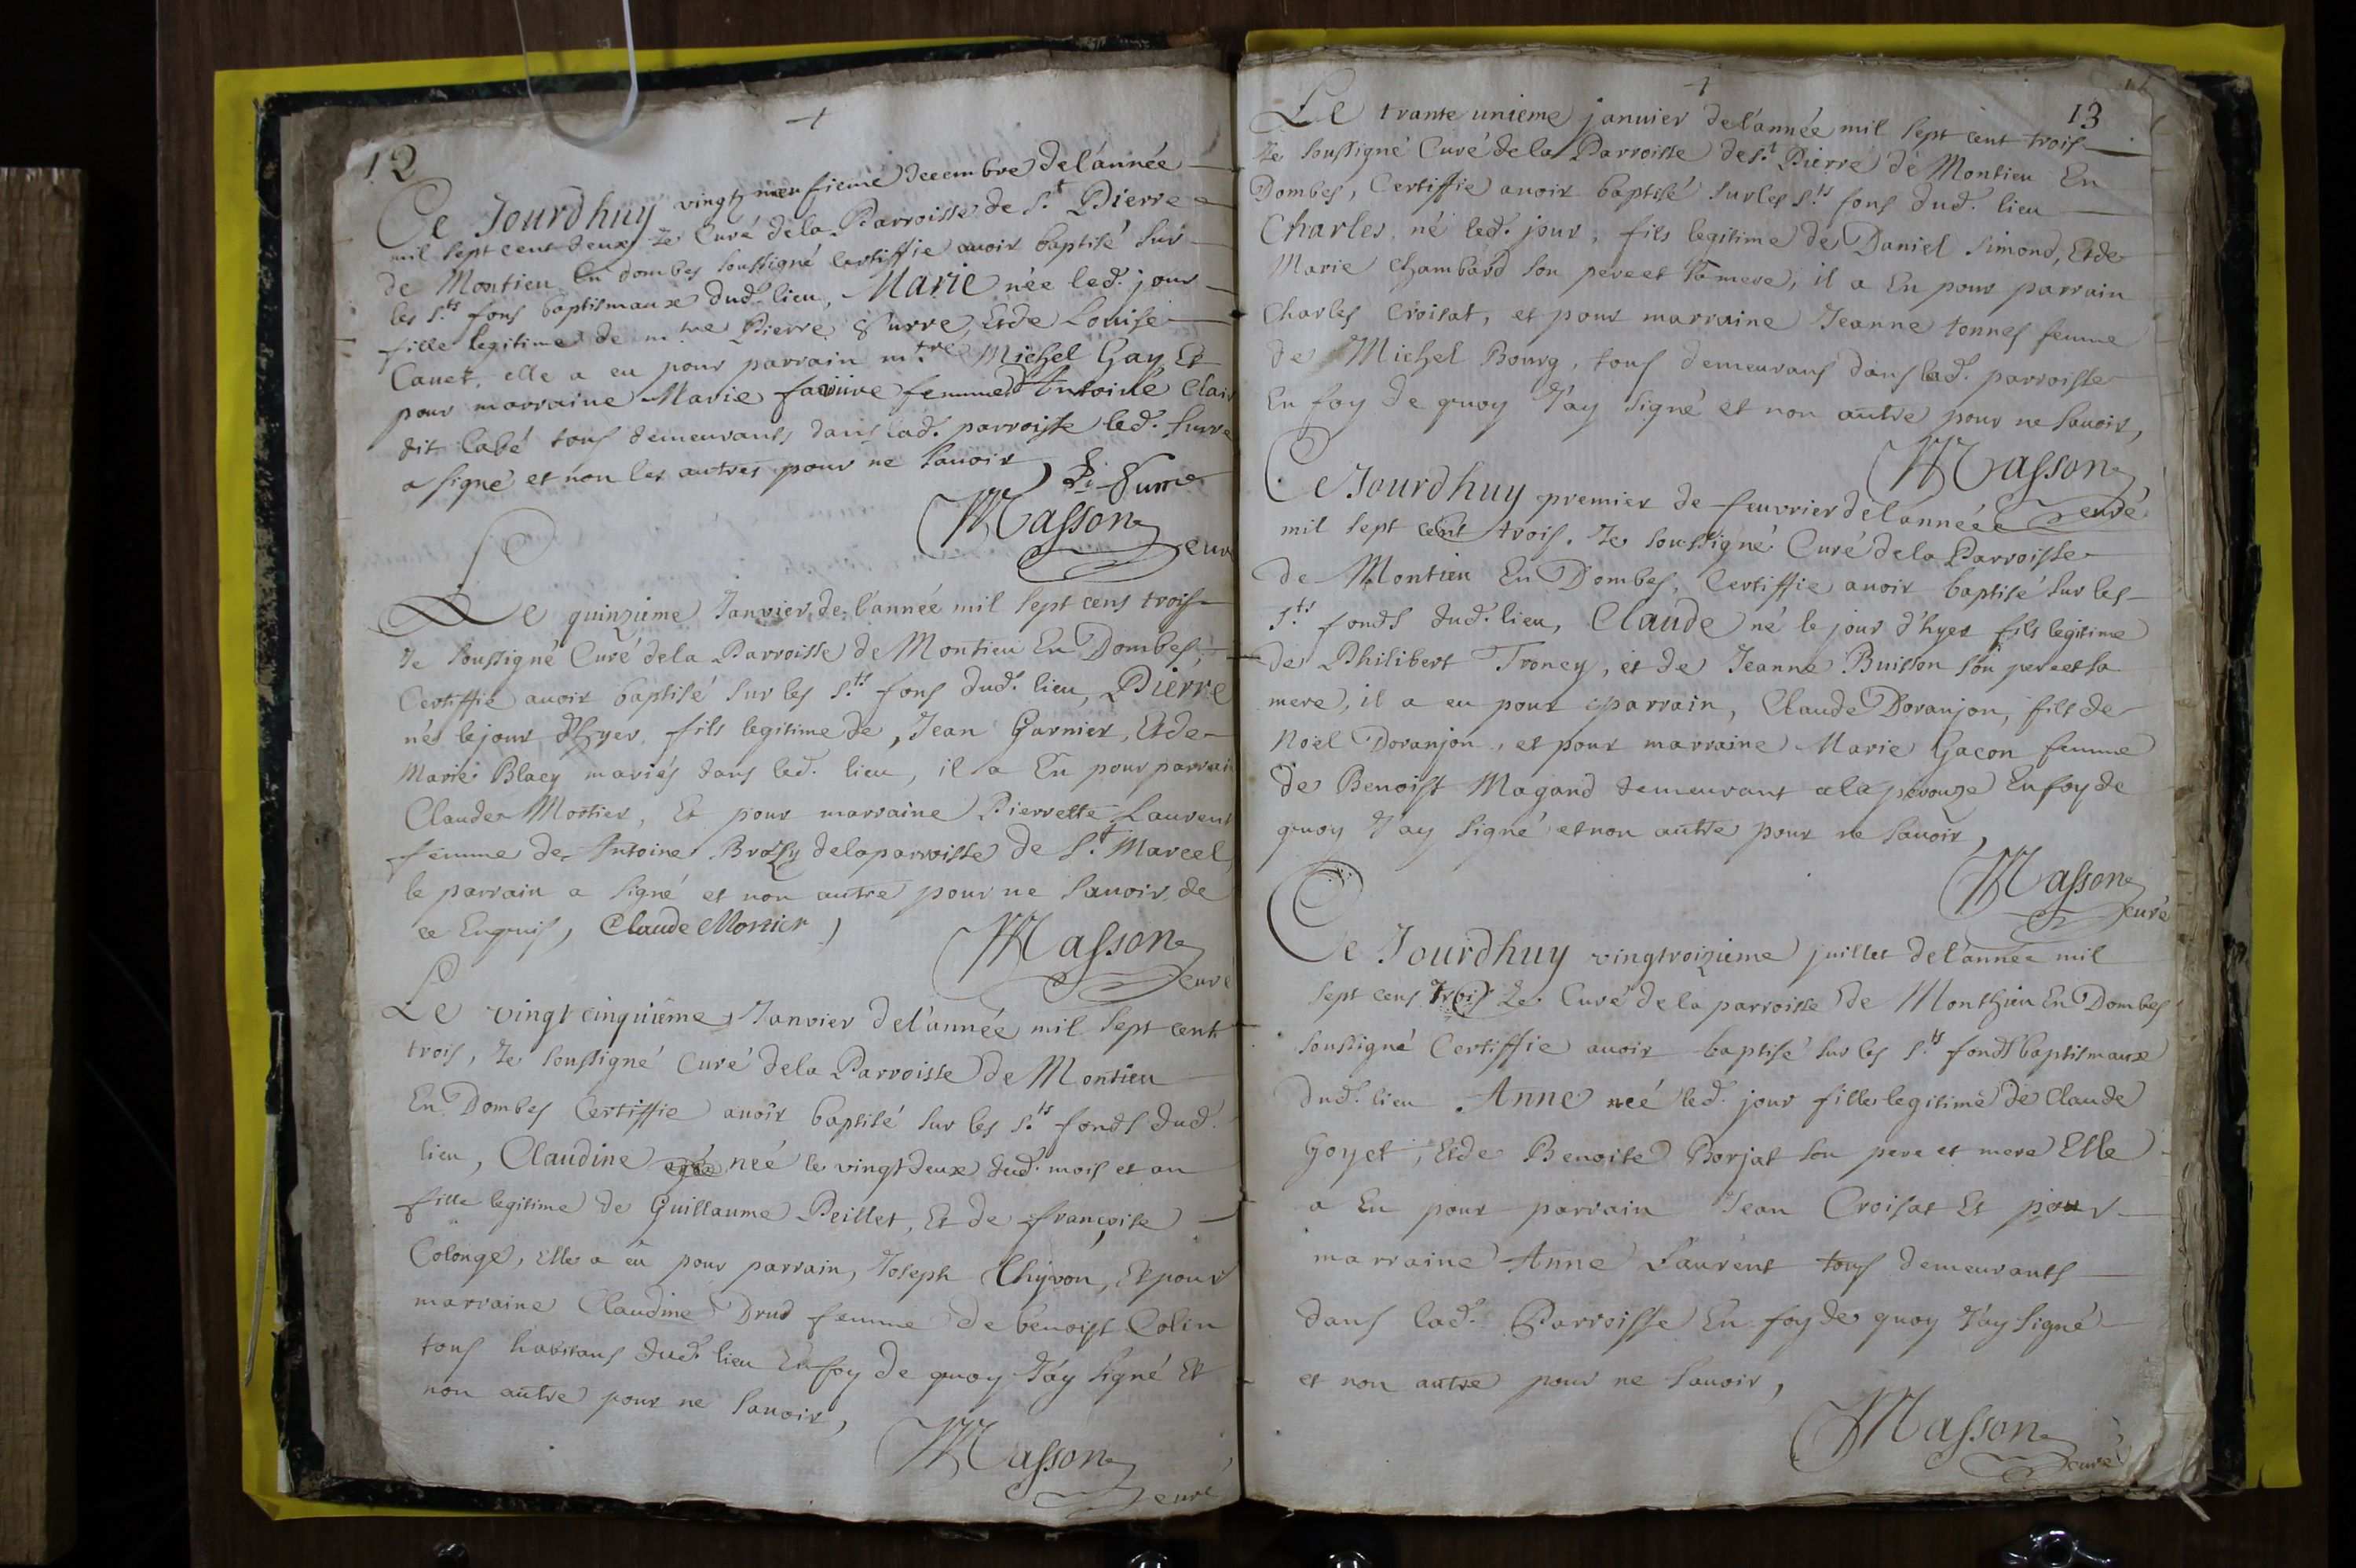 12
Ce Jourdhuy vingt neufieme decembre de l'année
mil sept cent deux Je Curé de la Parroisse de S.t Pierre
de Montieu En dombes soussigné Certiffie avoir baptisé sur
les S.ts fons baptismaux dud. lieu, Marie née led. jour
fille legitime de m.tre Pierre Surre, Et de Louise
Canet, elle a eu pour parrain m.tre Michel Gay, Et
pour marraine Marie femme d'Antoine Clair
dit labé tous demeurants dans lad. parroisse led. surre
a signé et non les autres pour ne savoir,
Masson
curé
Le quinzieme Janvier, de l'année mil sept cens trois
Je soussigné Curé de la Parroisse de Montieu En Dombes,
Certiffie avoir baptisé sur les S.ts fons dud. lieu, Pierre
né le jour d'hyer, fils legitime de, Jean Garnier, Et de
Marie Blacy mariés dans led. lieu, il a Eu pour parrain
Claude Mortier, Et pour marraine Pierrette Laurent
femme de Antoine de la parroisse de S.t Marcel,
le parrain a signé et non autre pour ne savoir, de
ce Enquis, Claude Mortier,
Masson
curé
Le vingt cinquieme Janvier de l'année mil sept cent
trois, Je soussigné Curé de la Parroisse de Montieu
En Dombes Certiffie avoir baptisé sur les S.ts fonds dud.
lieu, Claudine neé le vingt deux dud. mois et an
fille legitime de Guillaume Peillet, Et de françoise
Colonge, elle a eu pour parrain, Joseph Chyvon, Et pour
marraine Claudine Drud femme de benoist Colin
tous habitans dud. lieu En foy de quoy J'ay signé Et
non autre pour ne savoir,
Masson
curé
13
Le trante unieme janvier de l'année mil sept cent trois
Je soussigné Curé de la Parroisse de S.t Pierre de Montieu En
Dombes, Certiffie avoir baptisé sur les S.ts fons dud. lieu
Charles, né led. jour, fils legitime de Daniel Simond, Et de
Marie Chambard son pere et sa mere, il a Eu pour parrain
Charles Croisat, et pour marraine Jeanne tonnes femme
de Michel Bourg, tous demeurans dans lad. parroisse
En foy de quoy J'ay signé et non autre pour ne savoir,
Masson
curé
Ce Jourdhuy premier de feuvrier de l'annéee
mil sept cent trois. Je soussigné Curé de la Parroisse
de Montieu En Dombes, Certiffie avoir baptisé sur les
S.ts fonds dud. lieu, Claude né le jour d'hyer fils legitime
de Philibert Troncy, et de Jeanne Buisson son pere et sa
mere, il a eu pour parrain, Claude Doranjon, fils de
Noel Doranjon, et pour marraine Marie Gacon femme
de Benoist Magand demeurant a la perouze En foy de
quoy J'ay signé et non autre pour ne savoir,
Masson
curé
Ce Jourdhuy vingtroizieme juillet de l'année mil
sept cens trois Je Curé de la parroisse de Monthieu En Dombes
soussigné Certiffie avoir baptisé sur les S.ts fonds baptismaux
dud. lieu Anne neé led. jour fille legitime de Claude
Goyet, Et de Benoite Borjat son pere et mere Elle
a Eu pour parrain Jean Croisat Et pour
marraine Anne Laurent tous demeurants
dans lad. Parroisse En foy de quoy J'ay signé
et non autre pour ne savoir,
Masson
curé